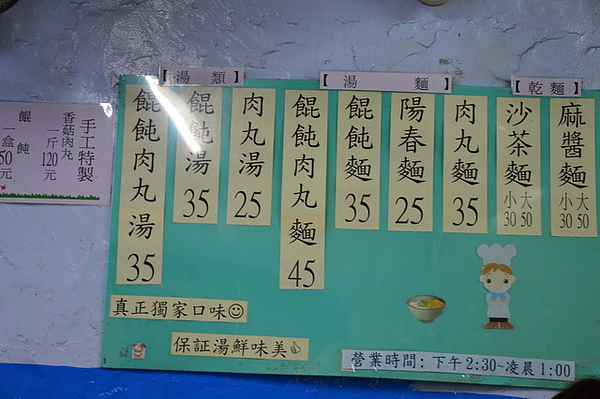 手工特製
香菇肉丸
一斤120元
餛飩
一盒50元
【湯類】
肉丸湯 25
餛飩湯 35
餛飩肉丸湯 35
【湯麵】
肉丸麵 35
陽春麵 25
餛飩麵 35
餛飩肉丸麵 45
【乾麵】
麻醬麵 大50 小30
沙茶麵 大50 小30
真正獨家口味
保証湯鮮味美
營業時間:下午2:30~凌晨1:00